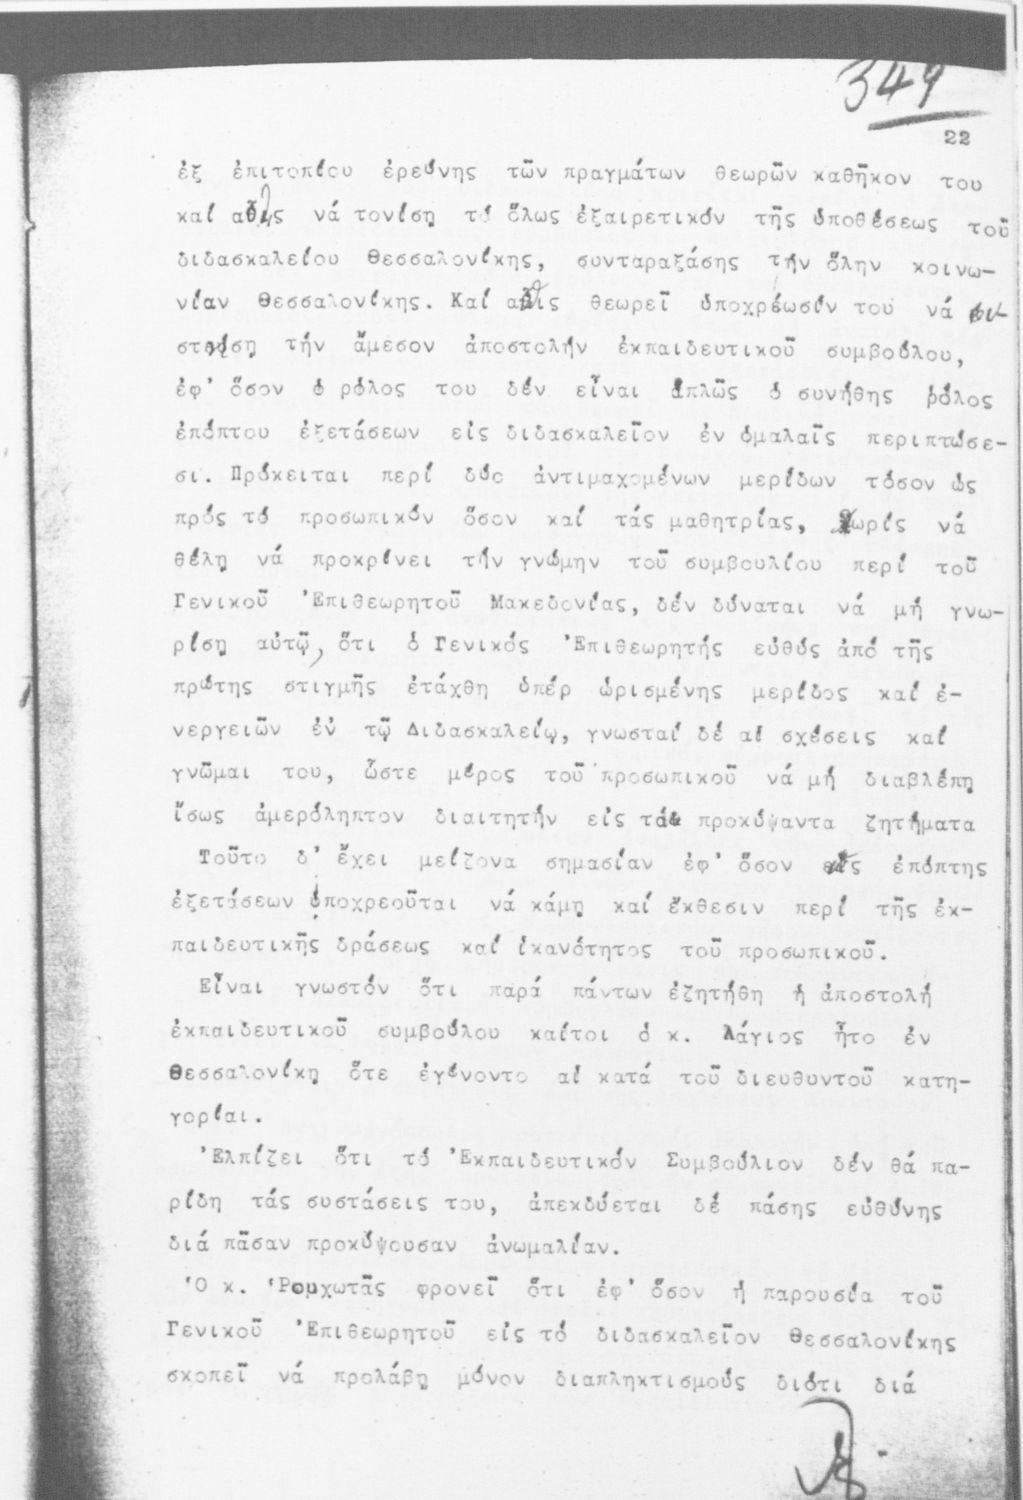 349
22
ἐξ ἐπιτοπίου ἐρεύνης τῶν πραγμάτων θεωρῶν καθῆκον του
καί αὖθις νά τονίσῃ τό ὅλως ἐξαιρετικόν τῆς ὑποθέσεως τοῦ
διδασκαλείου Θεσσαλονίκης, συνταραξάσης τήν ὅλην κοινω-
νίαν Θεσσαλονίκης. Καί αὖθις θεωρεῖ ὑποχρέωσίν του νά συ-
στήσῃ τήν ἄμεσον ἀποστολήν ἐκπαιδευτικοῦ συμβούλου,
ἐφ' ὅσον ὁ ρόλος του δέν εἶναι ἁπλῶς ὁ συνήθης ρόλος
ἐπόπτου ἐξετάσεων εἰς διδασκαλεῖον ἐν ὁμαλαῖς περιπτώσε-
σι. Πρόκειται περί δύο ἀντιμαχομένων μερίδων τόσον ὡς
πρός τό προσωπικόν ὅσον καί τάς μαθητρίας, χωρίς νά
θέλῃ νά προκρίνει τήν γνώμην τοῦ συμβουλίου περί τοῦ
Γενικοῦ Ἐπιθεωρητοῦ Μακεδονίας, δέν δύναται νά μή γνω-
ρίσῃ αὐτῷ, ὅτι ὁ Γενικός Ἐπιθεωρητής εὐθύς ἀπό τῆς
πρώτης στιγμῆς ἐτάχθη ὑπέρ ὡρισμένης μερίδος καί ἐ-
νεργειῶν ἐν τῷ Διδασκαλείῳ, γνωσταί δέ αἱ σχέσεις καί
γνῶμαι του, ὥστε μέρος τοῦ προσωπικοῦ νά μή διαβλέπῃ
ἴσως ἀμερόληπτον διαιτητήν εἰς τά προκύψαντα ζητήματα
Τοῦτο δ' ἔχει μείζονα σημασίαν ἐφ' ὅσον ὡς ἐπόπτης
ἐξετάσεων ὑποχρεοῦται νά κάμῃ καί ἔκθεσιν περί τῆς ἐκ-
παιδευτικῆς δράσεως καί ἱκανότητος τοῦ προσωπικοῦ.
Εἶναι γνωστόν ὅτι παρά πάντων ἐζητήθη ἡ ἀποστολή
ἐκπαιδευτικοῦ συμβούλου καίτοι ὁ κ. Λάγιος ἦτο ἐν
Θεσσαλονίκῃ ὅτε ἐγένοντο αἱ κατά τοῦ διευθυντοῦ κατη-
γορίαι.
Ἐλπίζει ὅτι τό Ἐκπαιδευτικόν Συμβούλιον δέν θά πα-
ρίδη τάς συστάσεις του, ἀπεκδύεται δέ πάσης εὐθύνης
διά πᾶσαν προκύψουσαν ἀνωμαλίαν.
Ὁ κ. Ῥουχωτᾶς φρονεῖ ὅτι ἐφ' ὅσον ἡ παρουσία τοῦ
Γενικοῦ Ἐπιθεωρητοῦ εἰς τό διδασκαλεῖον Θεσσαλονίκης
σκοπεῖ νά προλάβῃ μόνον διαπληκτισμούς διότι διά